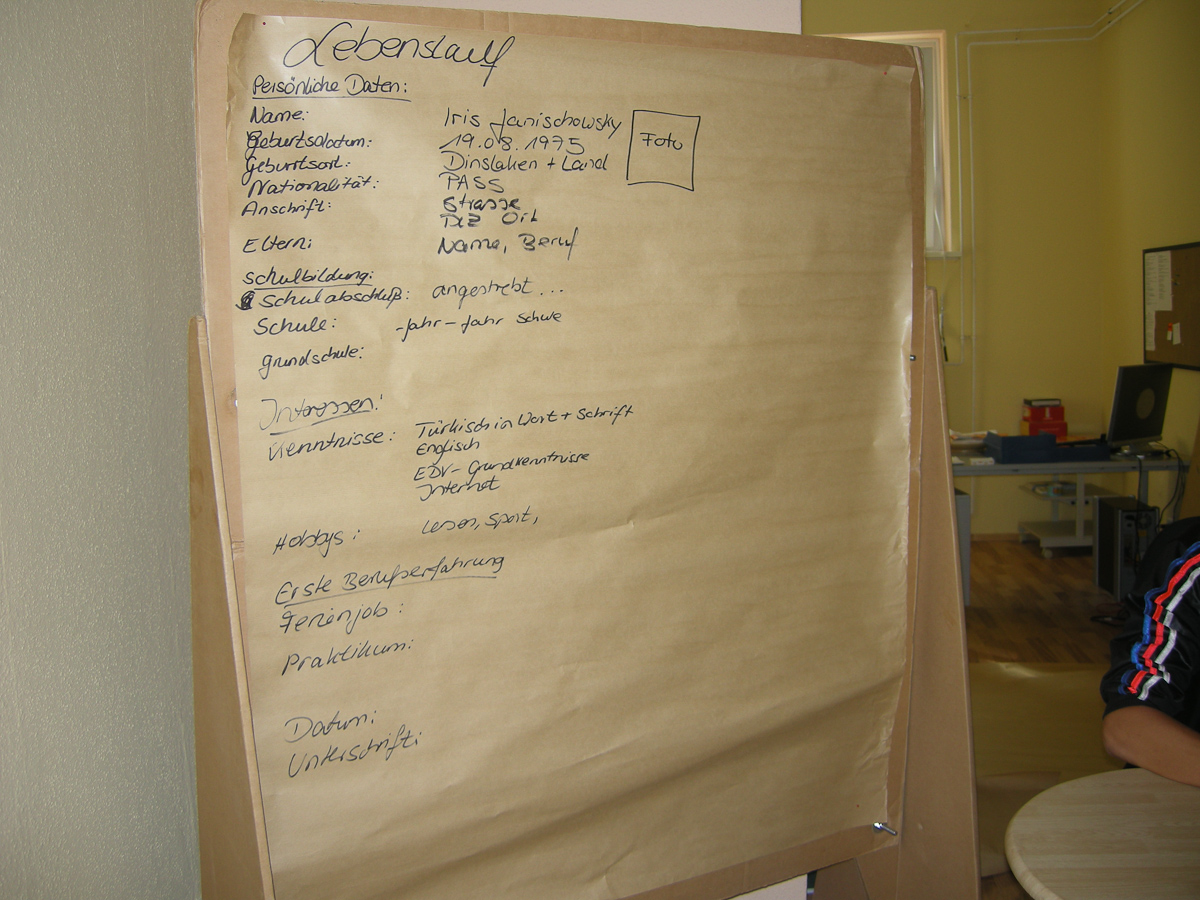 Lebenslauf
Persönliche Daten:
Name: Iris Janischowsky
Foto
Geburtsdatum: 19.08.1975
Geburtsort: Dinslaken + Land
Nationalität: PASS
Anschrift: Strasse
PLZ Ort
Eltern: Name, Beruf
Schulbildung:
Schulabschluß: angestrebt...
Schule: -Jahr - Jahr Schule
Grundschule:
Interessen:
Kenntnisse: Türkisch in Wort + Schrift
Englisch
EDV- Grundkenntnisse
Internet
Hobbys: Lesen, Sport,
Erste Berufserfahrung
Ferienjob:
Praktikum:
Datum:
Unterschrift: